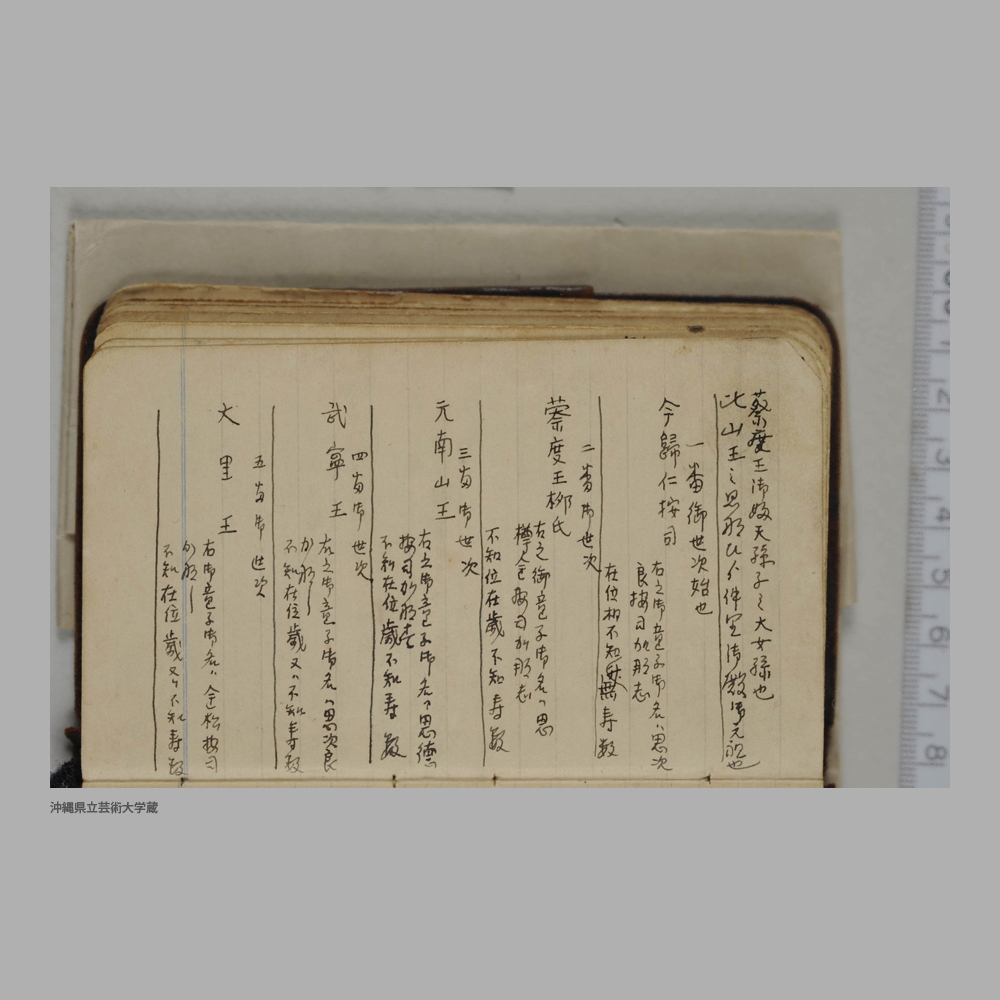 蔡度王御妏天孫子之大女孫也
此山王之思那ひ分件里清敷御元祖也
一番御世次始也
今歸仁按司
右之御童子御名ハ思次
良按司加那志
在位相不知無寿数
二番御世次
蔡度王柳氏
右之御童子御名ハ思
樽金按司加那志
不知位在歳不知寿数
三番御世次
元南山王
右之御童子御名ハ思德
按司加那志
不知在位歳不知寿数
四番御世次
武寧王
右之御童子御名ハ思次良
か那し
不知在位歳又ハ不知寿数
五番御世次
大里王
右御童子御名ハ金松按司
か那し
不知在位歳又ハ不知寿数
沖縄県立芸術大学蔵